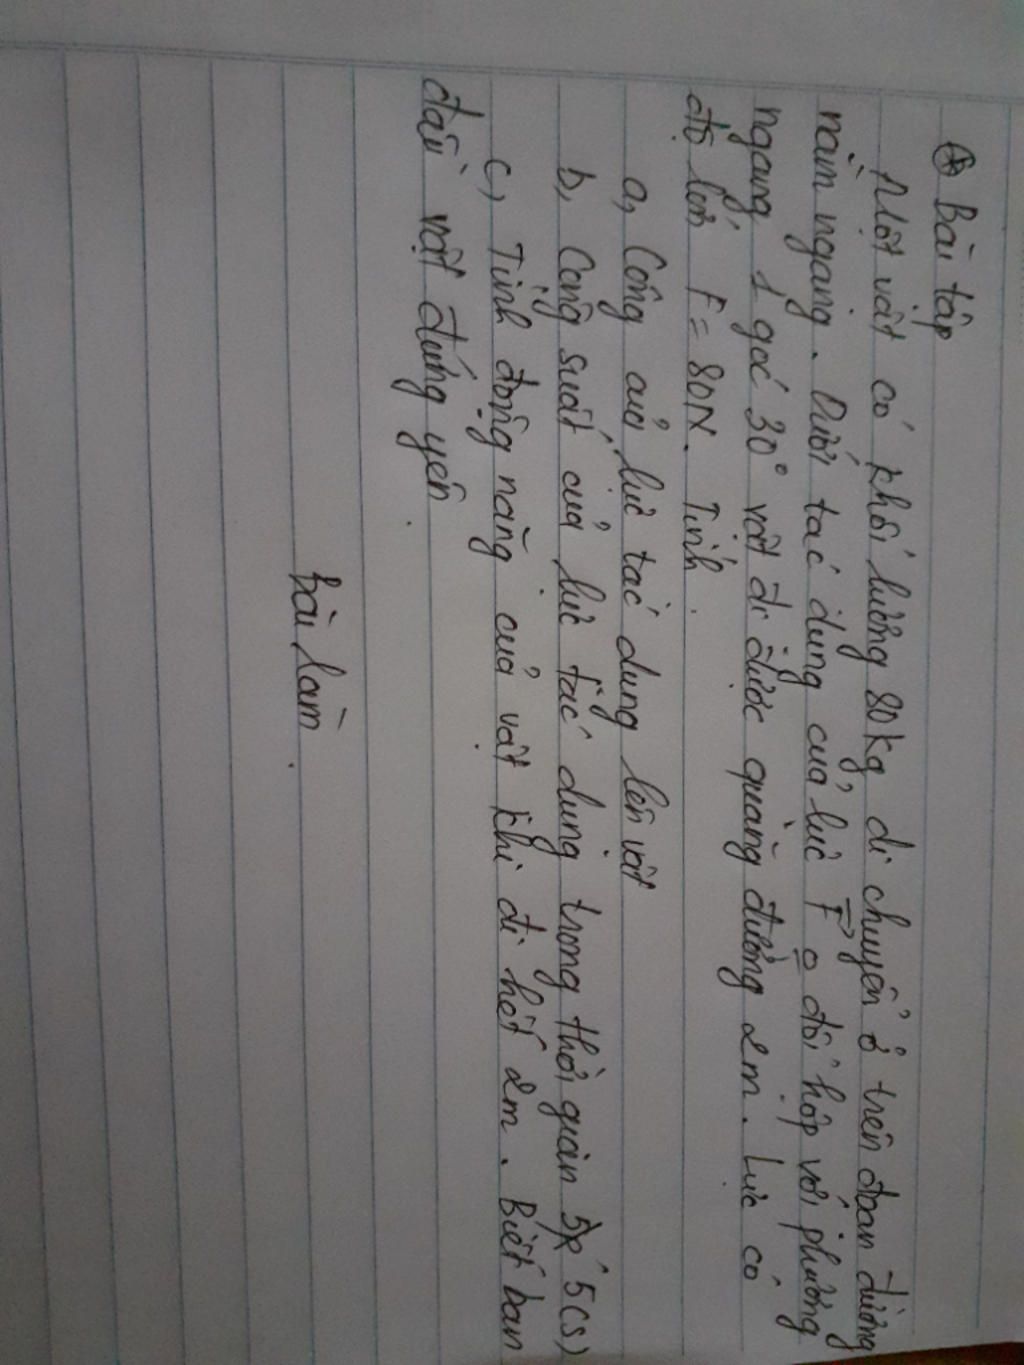 ⊛ Bài tập
Một vật có khối lượng 80kg di chuyển ở trên đoạn đường
nằm ngang. Dưới tác dụng của lực F→ o đổi hợp với phương
ngang 1 góc 30° vật đi được quãng đường 2m. Lực có
độ lớn F = 80N. Tính.
a, Công của lực tác dụng lên vật
b, Công suất của lực tác dụng trong thời gian 5(s)
c, Tính động năng của vật khi đi hết 2m. Biết ban
đầu vật đứng yên.
bài làm.